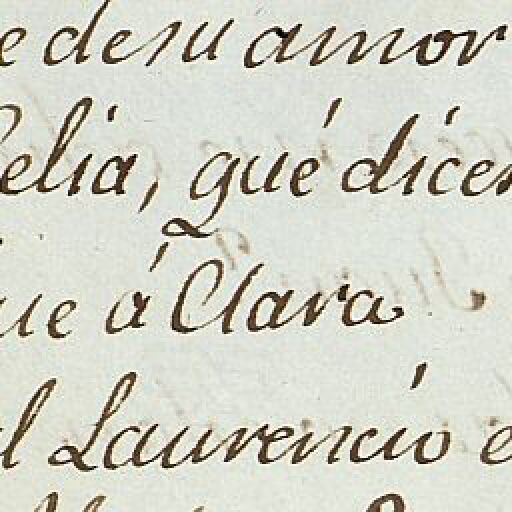 e de su amor
Celia, qué dices
que á Clara
al Laurencio e